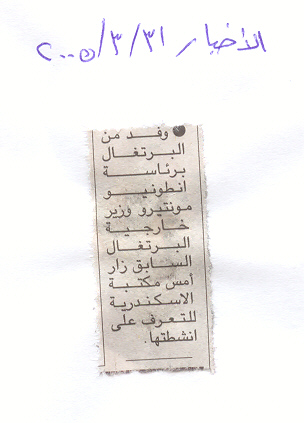 الأخبار ٣١/٣/٢٠٠٥
● وفد من
البرتغال
برئاسة
انطونيو
مونتيرو وزير
خارجية
البرتغال
السابق زار
أمس مكتبة
الاسكندرية
للتعرف على
انشطتها.